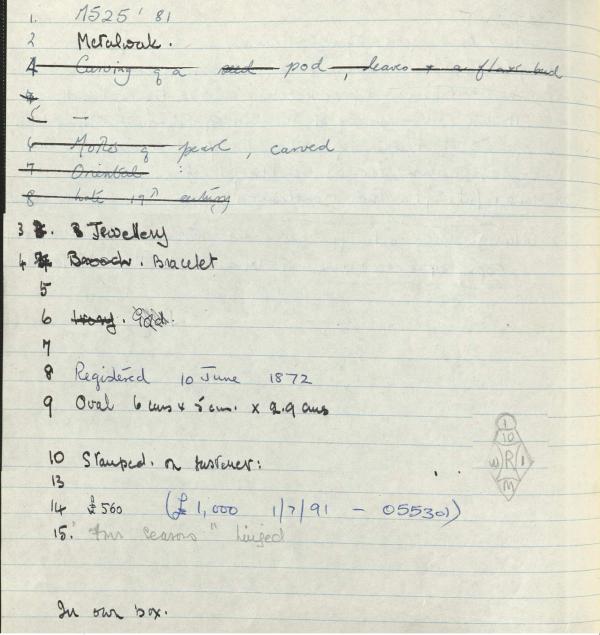 1. M525 ' 81
2 Metalwork.
4 Carving of a seed pod, leaves + a flax bud
5 —
6 Mother of pearl, carved
7 Oriental
8 Late 19th century
3 Jewellery
4 Brooch. Bracelet
5
6 Ivory. Gold.
7
8 Registered 10 June 1872
9 Oval 6 cms x 5 cm. x 2.9 cms
10 Stamped. on fastener:
1
10
W R 1
M
13
14 £560 (£1,000 1/7/91 - 055301)
15. " seasons" hinged
In own box.